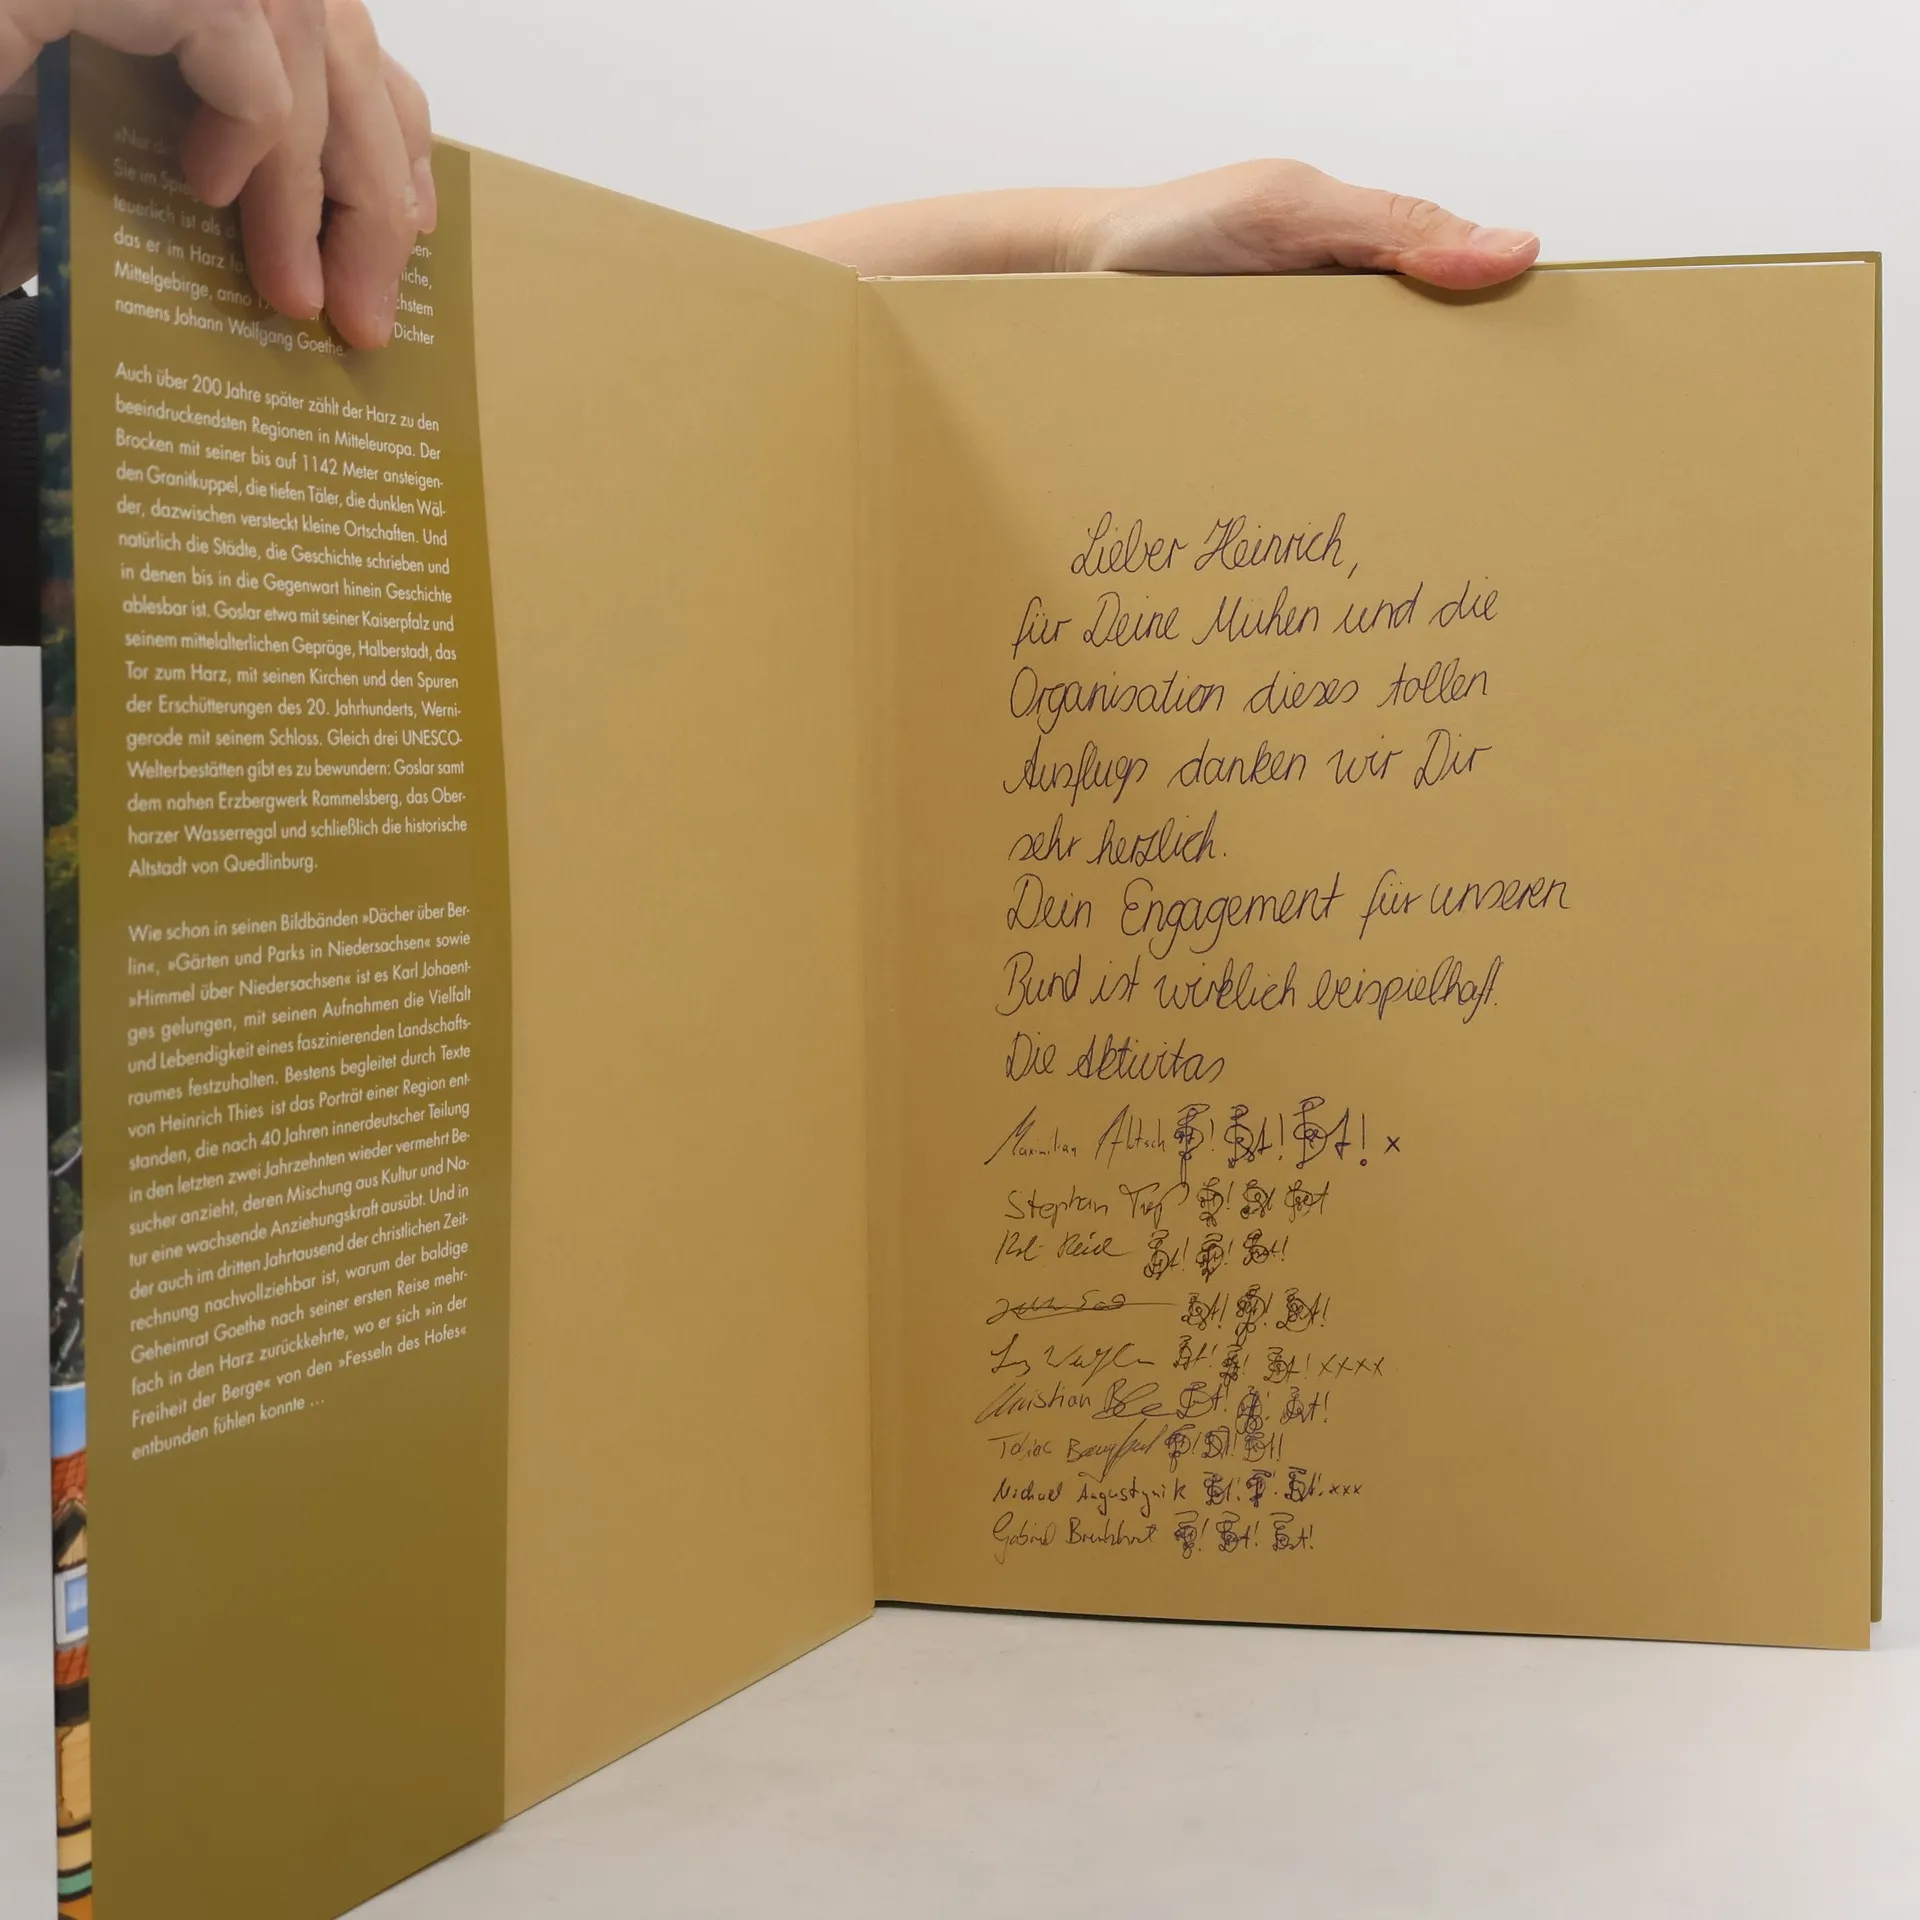 Sie im
teuerlich ist als
das er im Harz
Mittelgebirge, anno
namens Johann Wolfgang Goethe.
chstem
Dichter
Auch über 200 Jahre später zählt der Harz zu den
beeindruckendsten Regionen in Mitteleuropa. Der
Brocken mit seiner bis auf 1142 Meter ansteigen-
den Granitkuppel, die tiefen Täler, die dunklen Wäl-
der, dazwischen versteckt kleine Ortschaften. Und
natürlich die Städte, die Geschichte schrieben und
in denen bis in die Gegenwart hinein Geschichte
ablesbar ist. Goslar etwa mit seiner Kaiserpfalz und
seinem mittelalterlichen Gepräge, Halberstadt, das
Tor zum Harz, mit seinen Kirchen und den Spuren
der Erschütterungen des 20. Jahrhunderts, Werni-
gerode mit seinem Schloss. Gleich drei UNESCO-
Welterbestätten gibt es zu bewundern: Goslar samt
dem nahen Erzbergwerk Rammelsberg, das Ober-
harzer Wasserregal und schließlich die historische
Altstadt von Quedlinburg.
Wie schon in seinen Bildbänden »Dächer über Ber-
lin«, »Gärten und Parks in Niedersachsen« sowie
»Himmel über Niedersachsen« ist es Karl Johaent-
ges gelungen, mit seinen Aufnahmen die Vielfalt
und Lebendigkeit eines faszinierenden Landschafts-
raumes festzuhalten. Bestens begleitet durch Texte
von Heinrich Thies ist das Porträt einer Region ent-
standen, die nach 40 Jahren innerdeutscher Teilung
in den letzten zwei Jahrzehnten wieder vermehrt Be-
sucher anzieht, deren Mischung aus Kultur und Na-
tur eine wachsende Anziehungskraft ausübt. Und in
der auch im dritten Jahrtausend der christlichen Zeit-
rechnung nachvollziehbar ist, warum der baldige
Geheimrat Goethe nach seiner ersten Reise mehr-
fach in den Harz zurückkehrte, wo er sich »in der
Freiheit der Berge« von den »Fesseln des Hofes«
entbunden fühlen konnte ...
Lieber Heinrich,
für Deine Mühen und die
Organisation dieses tollen
Ausflugs danken wir Dir
sehr herzlich.
Dein Engagement für unseren
Bund ist wirklich beispielhaft.
Die Aktivitas
Maximilian x
Stephan
xxxx
Christian
Tobias
Michael Augustynik xxx
Gabriel